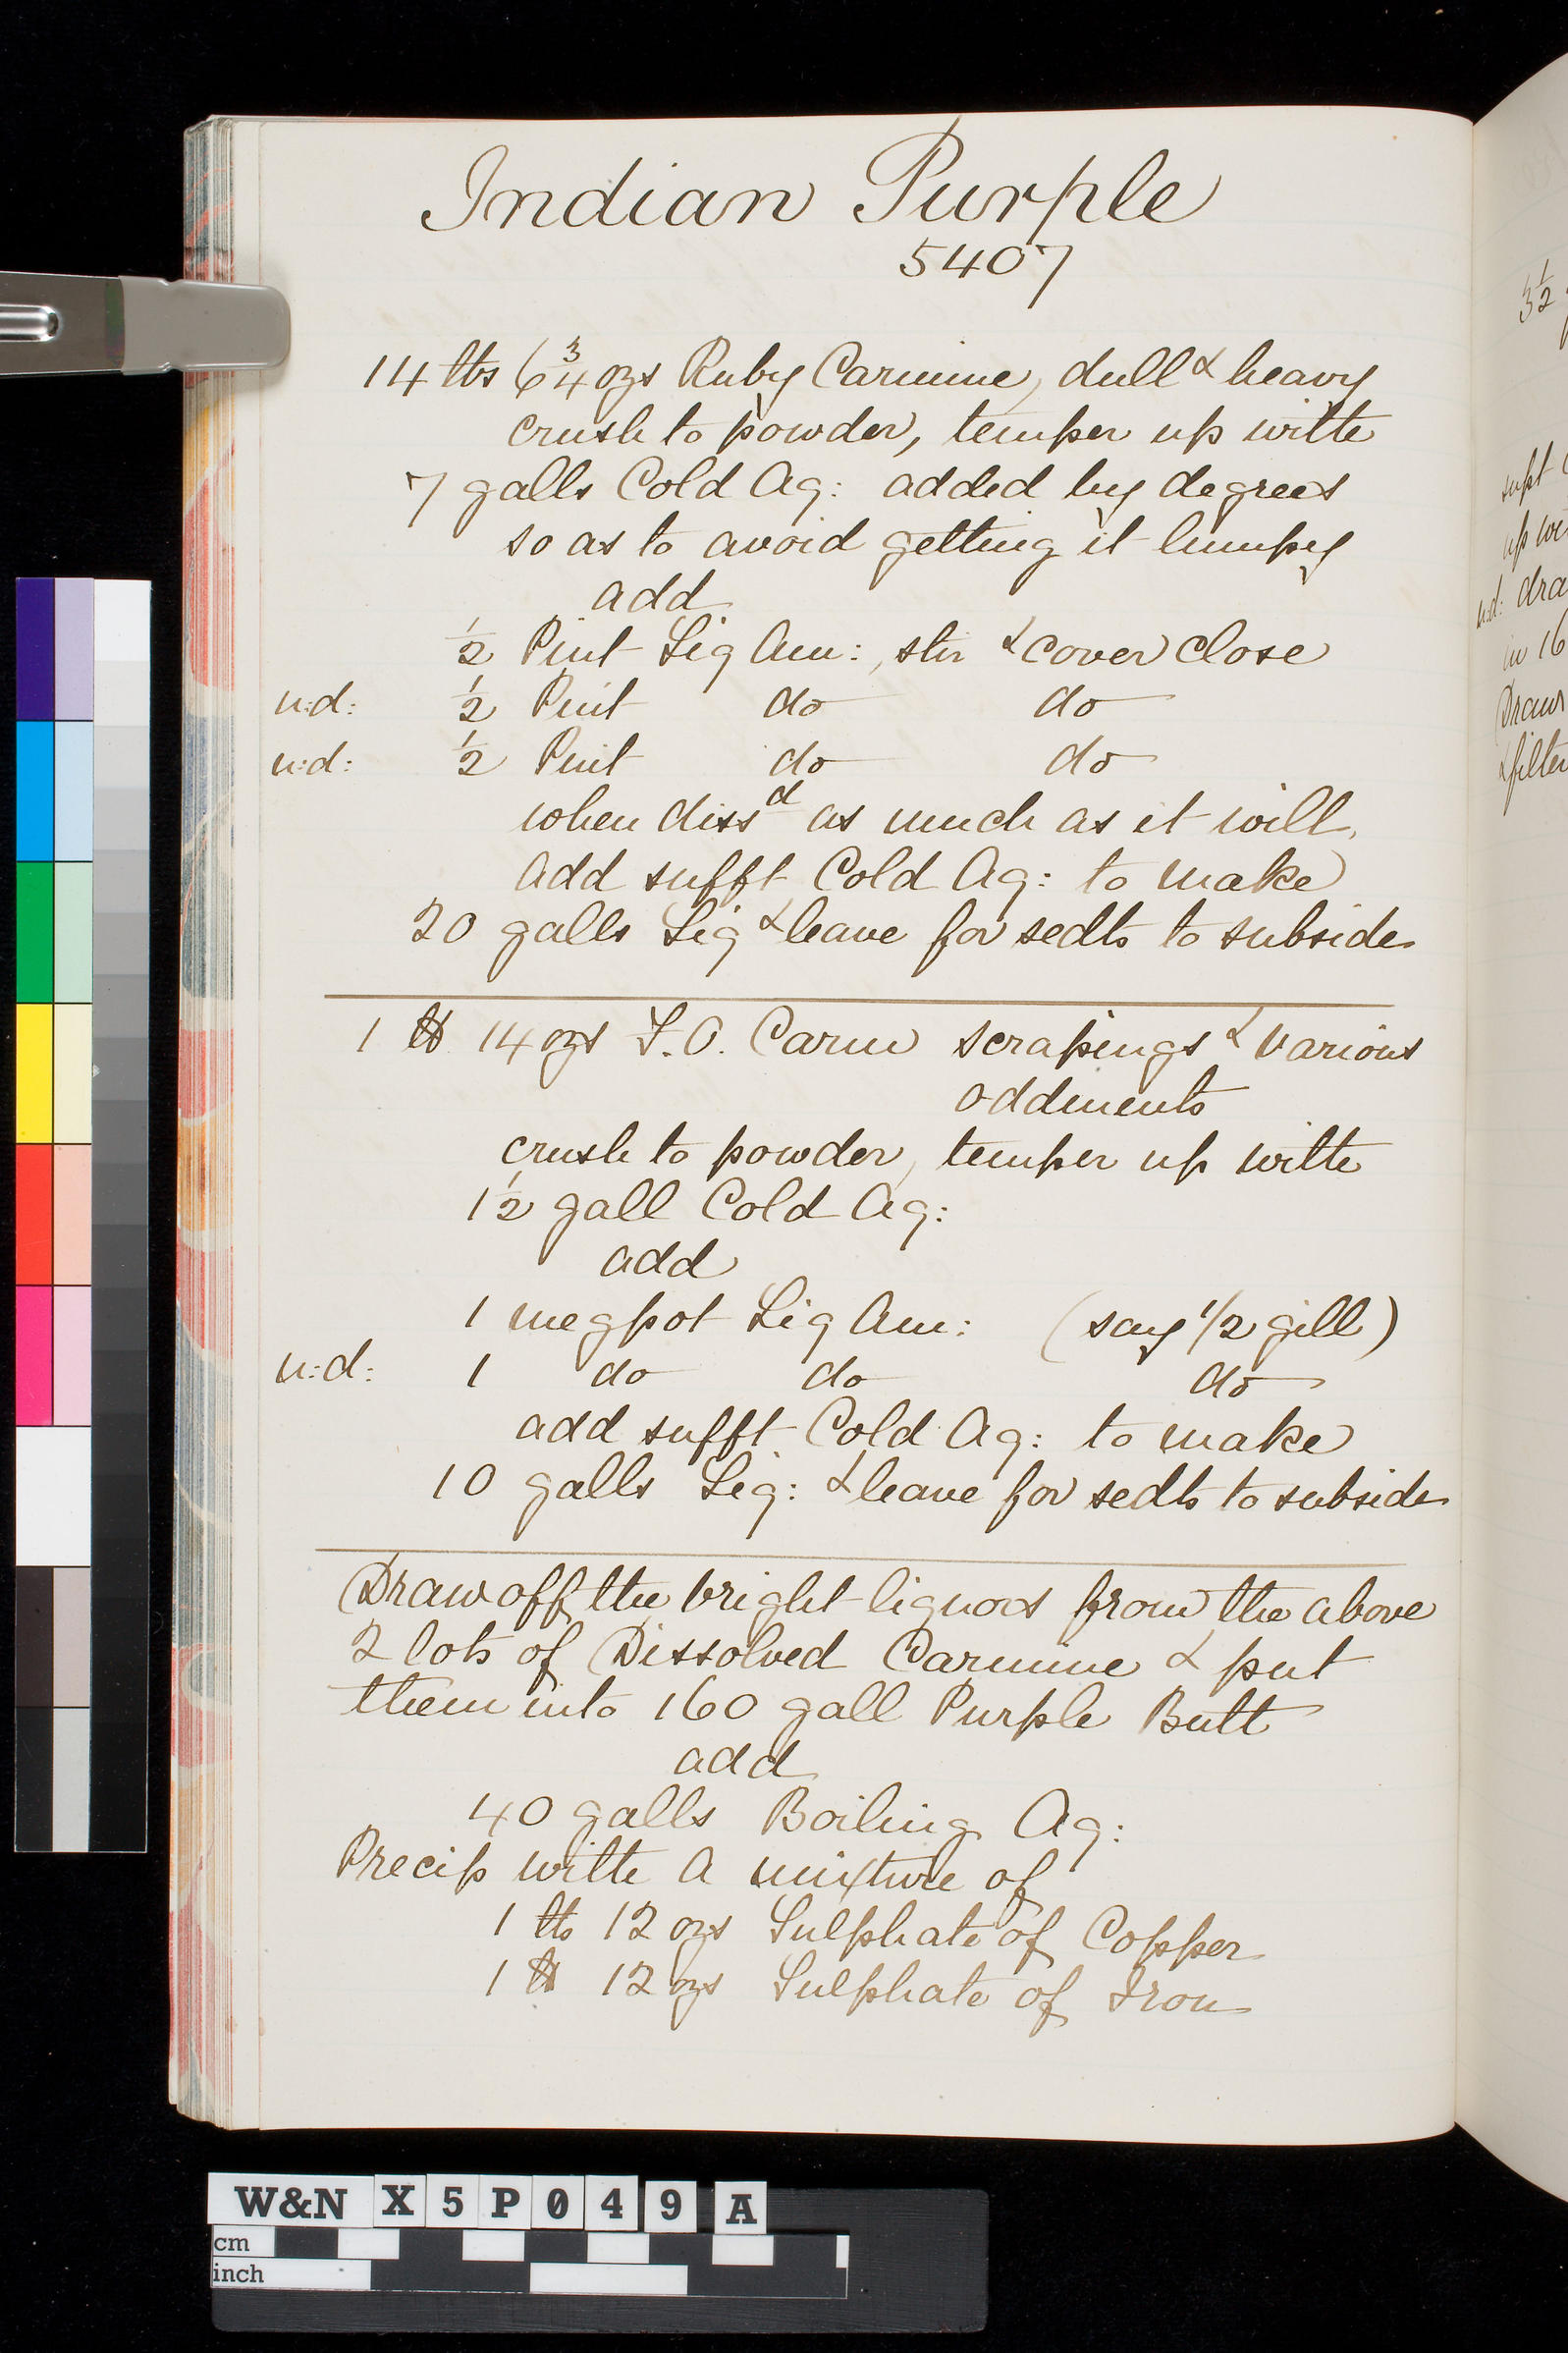 Indian Purple
5407
14 lbs 6 3/4 ozs Ruby Carmine, dull & heavy
crush to powder, temper up with
7 galls Cold Aq: added by degrees
so as to avoid getting it lumpy
add
1/2 Pint Liq Am:, stir & cover close
n:d: 1/2 Pint do do
n:d: 1/2 Pint do do
when dissd as much as it will,
add sufft Cold Aq: to make
20 galls Liq & leave for sedts to subside
1 lb 14 ozs F.O. Carm scrapings & various
oddments
crush to powder, temper up with
1 1/2 gall Cold Aq:
add
1 megpot Liq Am: (say 1/2 gill)
n:d: 1 do do do
add sufft Cold Aq: to make
10 galls Liq: & leave for sedts to subside
Draw off the bright liquors from the above
2 lots of Dissolved Carmine & put
them into 160 gall Purple Butt
add
40 galls Boiling Aq:
Precip with a mixture of
1 lb 12 ozs Sulphate of Copper
1 lb 12 ozs Sulphate of Iron
3 1/2
supt
up wi
n:d: dra
in 16
Draw
& filter
W&N X 5 P 0 4 9 A
cm
inch